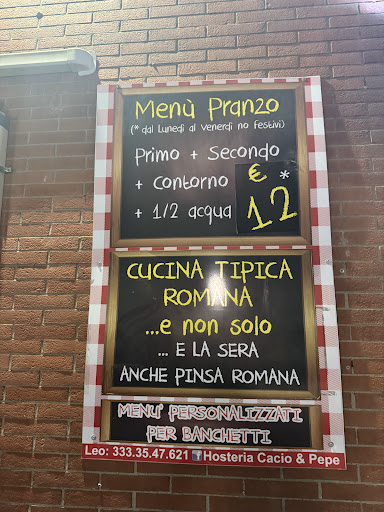 Menù Pranzo
(* dal Lunedì al Venerdì no festivi)
Primo + Secondo
+ Contorno
+ 1/2 acqua
€ *
12
CUCINA TIPICA
ROMANA
...e non solo
... E LA SERA
ANCHE PINSA ROMANA
MENU' PERSONALIZZATI
PER BANCHETTI
Leo: 333.35.47.621 f Hosteria Cacio & Pepe